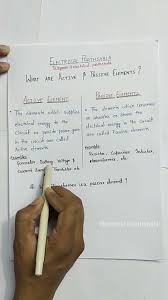 ELECTRICAL POTHSHALA
WHAT ARE ACTIVE & PASSIVE ELEMENTS ?
ACTIVE ELEMENT
The elements which supplies
electrical energy to the
circuit or provide power gain
in the circuit are called
Active elements.
Examples:
Generator, Battery, Voltage &
Current Source, Transistor etc.
PASSIVE ELEMENTS
The elements which consumes
or absorbes or stores the
electrical energy in the circuit
are called Passive elements.
Examples:
Resistor, Capacitor, Inductor,
transformer, etc.
Transformer is a passive element ?